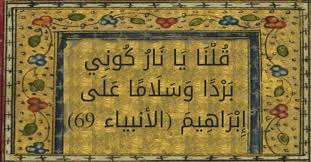 قُلْنَا يَا نَارُ كُونِي
بَرْدًا وَسَلَامًا عَلَى
إِبْرَاهِيمَ (الأنبياء 69)